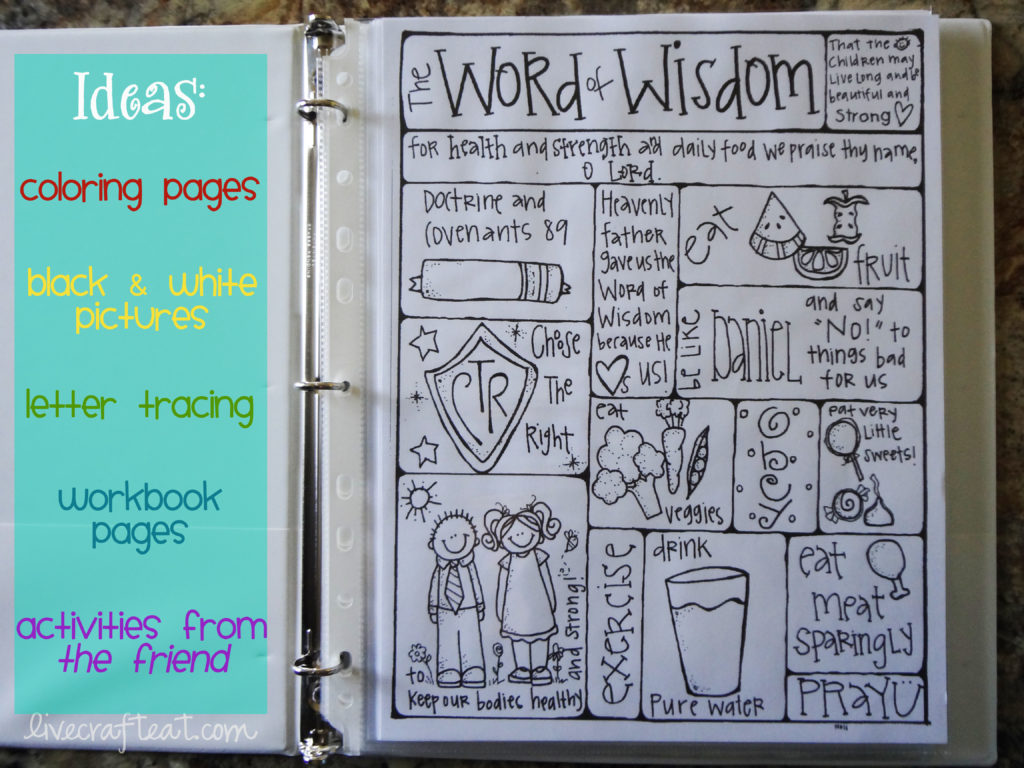 Ideas:
coloring pages
black & white
pictures
letter tracing
workbook
pages
activities from
the friend
livecrafteat.com
The Word of Wisdom
That the
Children may
Live Long and be
beautiful and
Strong
for health and strength and daily food we praise thy name,
O Lord.
Doctrine and
Covenants 89
Heavenly
father
gave us the
Word of
Wisdom
because He
♡s US!
eat
fruit
Be LIKE
DANIEL
and say
"No!" to
things bad
for us
CTR
Choose
The
Right
eat
veggies
D&C 89
eat very
Little
sweets!
to
Keep our bodies healthy
and strong!
exercise
drink
Pure water
eat
meat
sparingly
PRAY